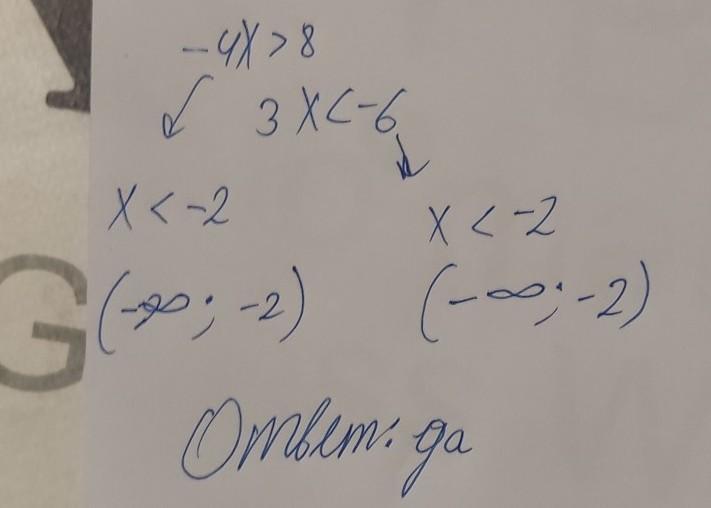 -4x > 8
3x < -6
x < -2 x < -2
(-∞; -2) (-∞; -2)
Ответ: да
G